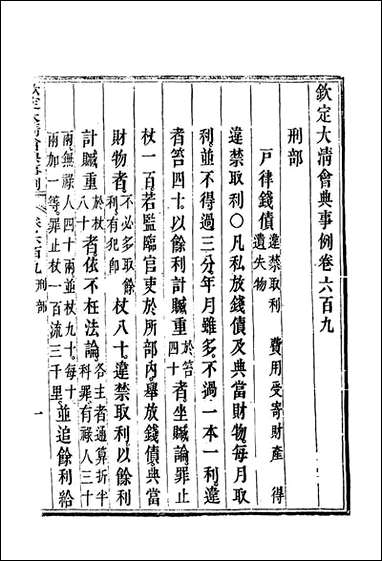 欽定大淸會典事例卷六百九
刑部
戸律錢債違禁取利 費用受寄財產 得遺失物
違禁取利○凡私放錢債及典當財物每月取
利並不得過三分年月雖多不過一本一利違
者笞四十以餘利計贓重於笞四十者坐贓論罪止
杖一百若監臨官吏於所部內舉放錢債典當
財物者不必多取餘利有犯卽杖八十違禁取利以餘利
計贓重於杖八十者依不枉法論各主者通算折半科罪有祿人三十
兩無祿人四十兩並杖九十每十兩加一等罪止杖一百流三千里並追餘利給
欽定大淸會典事例 卷六百九 刑部 一